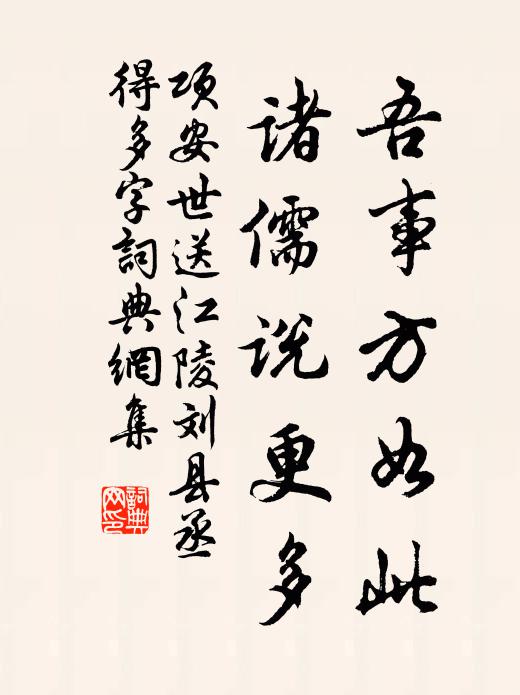 吾事方如此
诸儒说更多
项安世送江陵刘县丞
得多字詞典網集
詞典
网印